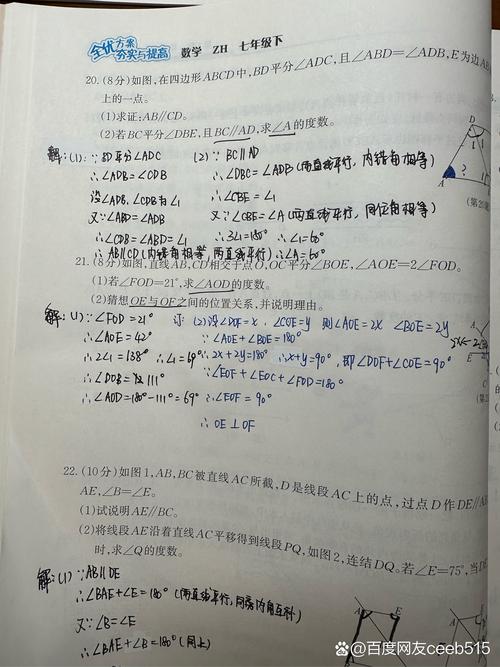 全优方案
夯实与提高 数学 ZH 七年级下
20.(8分)如图,在四边形ABCD中,BD平分∠ADC,且∠ABD=∠ADB,E为边AB
上的一点。
(1)求证:AB//CD。
(2)若BC平分∠DBE,且BC//AD,求∠A的度数。
解:(1)∵BD平分∠ADC (2)∵BC∥AD
∴∠ADB=∠CDB ∴∠DBC=∠ADB(两直线平行,内错角相等)
设∠ADB,∠CDB为∠1 ∴∠CBE=∠1
又∵∠ABD=∠ADB 又∵∠CBE=∠A(两直线平行,同位角相等)
∴∠CDB=∠ABD=∠1 ∴3∠1=180° ∴∠1=60°
∴AB∥CD(内错角相等,两直线平行) ∴∠A=60°
D
1
1
A
?
(第20题
21.(8分)如图,直线AB,CD相交于点O,OC平分∠BOE,∠AOE=2∠FOD。
(1)若∠FOD=21°,求∠AOD的度数。
(2)猜想OE与OF之间的位置关系,并说明理由。
解:(1)∵∠FOD=21° (2)设∠DOF=x,∠COE=y 则∠AOE=2x ∠BOE=2y
∴∠AOE=42° ∵∠AOE+∠BOE=180°
∴2∠1=138° ∴∠1=69° ∴2x+2y=180° ∴x+y=90°,即∠DOF+∠COE=90°
∴∠DOB=111° ∵∠EOF+∠EOC+∠FOD=180°
∴∠AOD=180°-111°=69° ∴∠EOF=90°
∴OE⊥OF
A
E
C
22.(10分)如图1,AB,BC被直线AC所截,D是线段AC上的点,过点D作DE//A
AE,∠B=∠E。
(1)试说明AE//BC。
(2)将线段AE沿着直线AC平移得到线段PQ,如图2,连结DQ。若∠E=75°,当D
时,求∠Q的度数。
解:(1)∵AB∥DE
∴∠BAE+∠E=180°(两直线平行,同旁内角互补)
又∵∠B=∠E
∴∠BAE+∠B=180°(同上)
A
E
@百度网友ceeb515